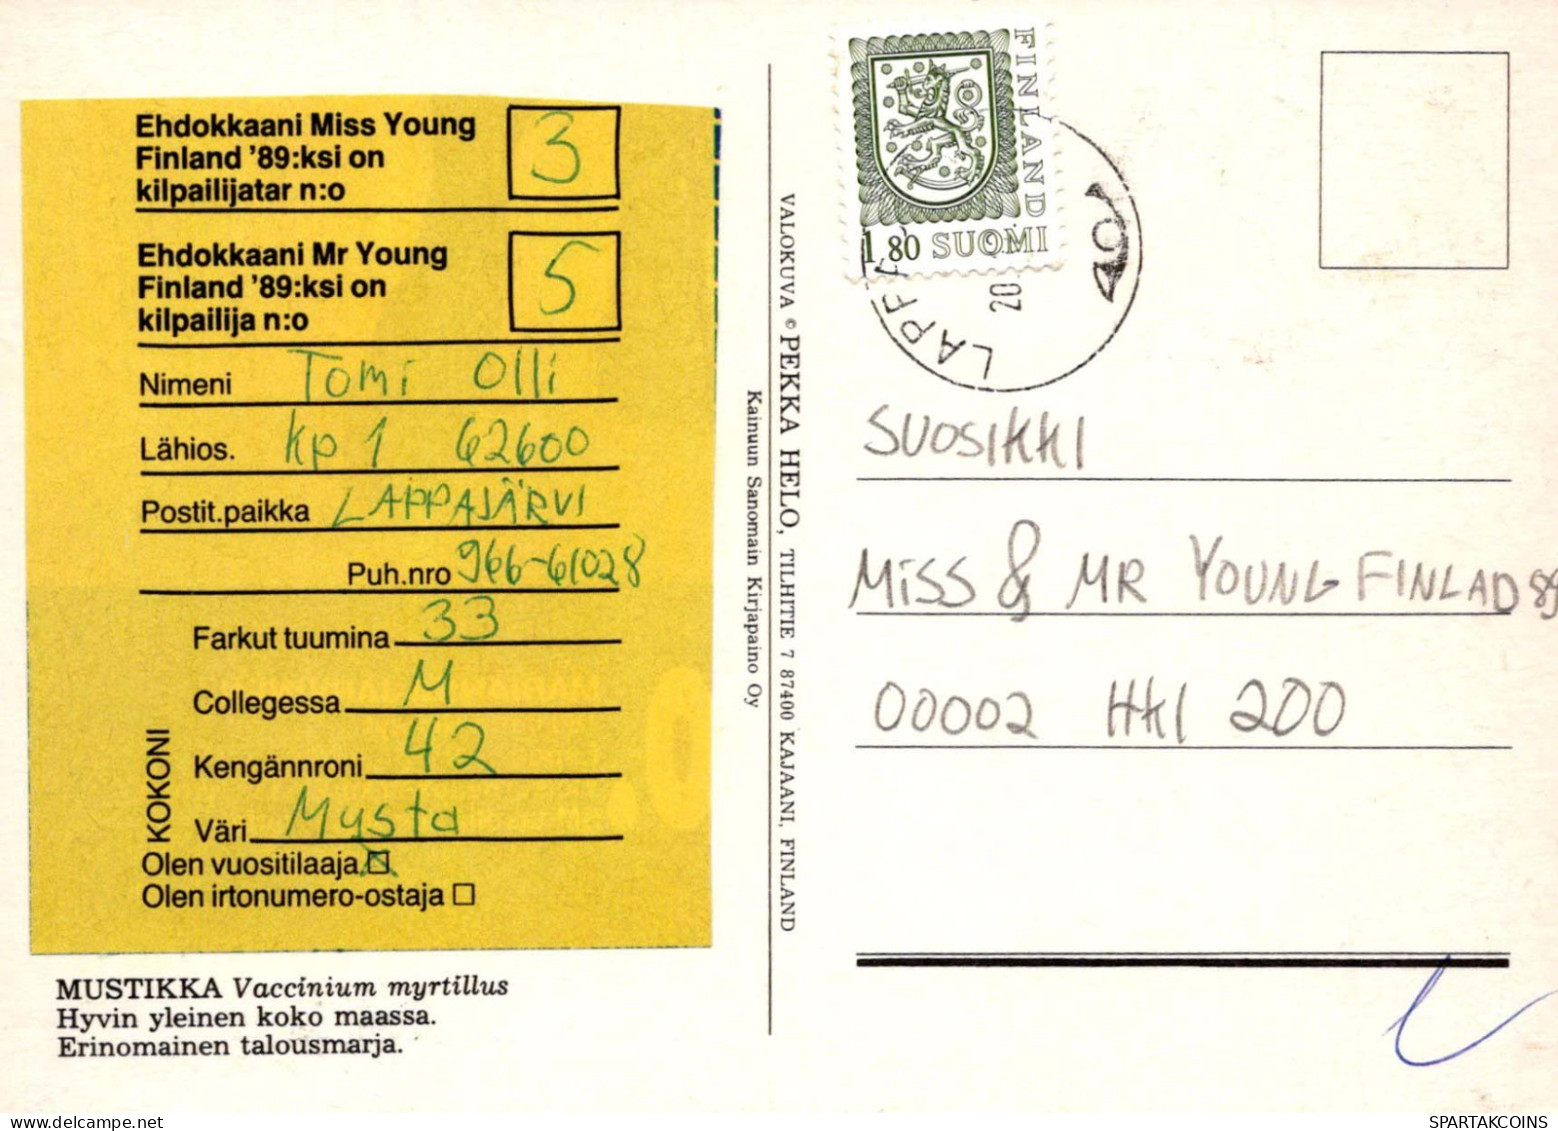 Ehdokkaani Miss Young
Finland '89:ksi on
kilpailijatar n:o 3
Ehdokkaani Mr Young
Finland '89:ksi on
kilpailija n:o 5
Nimeni Tomi Olli
Lähios. Kp 1 62600
Postit.paikka LAPPAJÄRVI
Puh.nro 966-61028
KOKONI
Farkut tuumina 33
Collegessa M
Kengännroni 42
Väri Mysta
Olen vuositilaaja
Olen irtonumero-ostaja
MUSTIKKA Vaccinium myrtillus
Hyvin yleinen koko maassa.
Erinomainen talousmarja.
VALOKUVA © PEKKA HELO, TILHITIE 7 87400 KAJAANI, FINLAND
Kainuun Sanomain Kirjapaino Oy
FINLAND
1,80 SUOMI
20
SUOSIKKI
MISS & MR YOUNG FINLAD 89
00002 HKI 200
SPARTAKCOINS